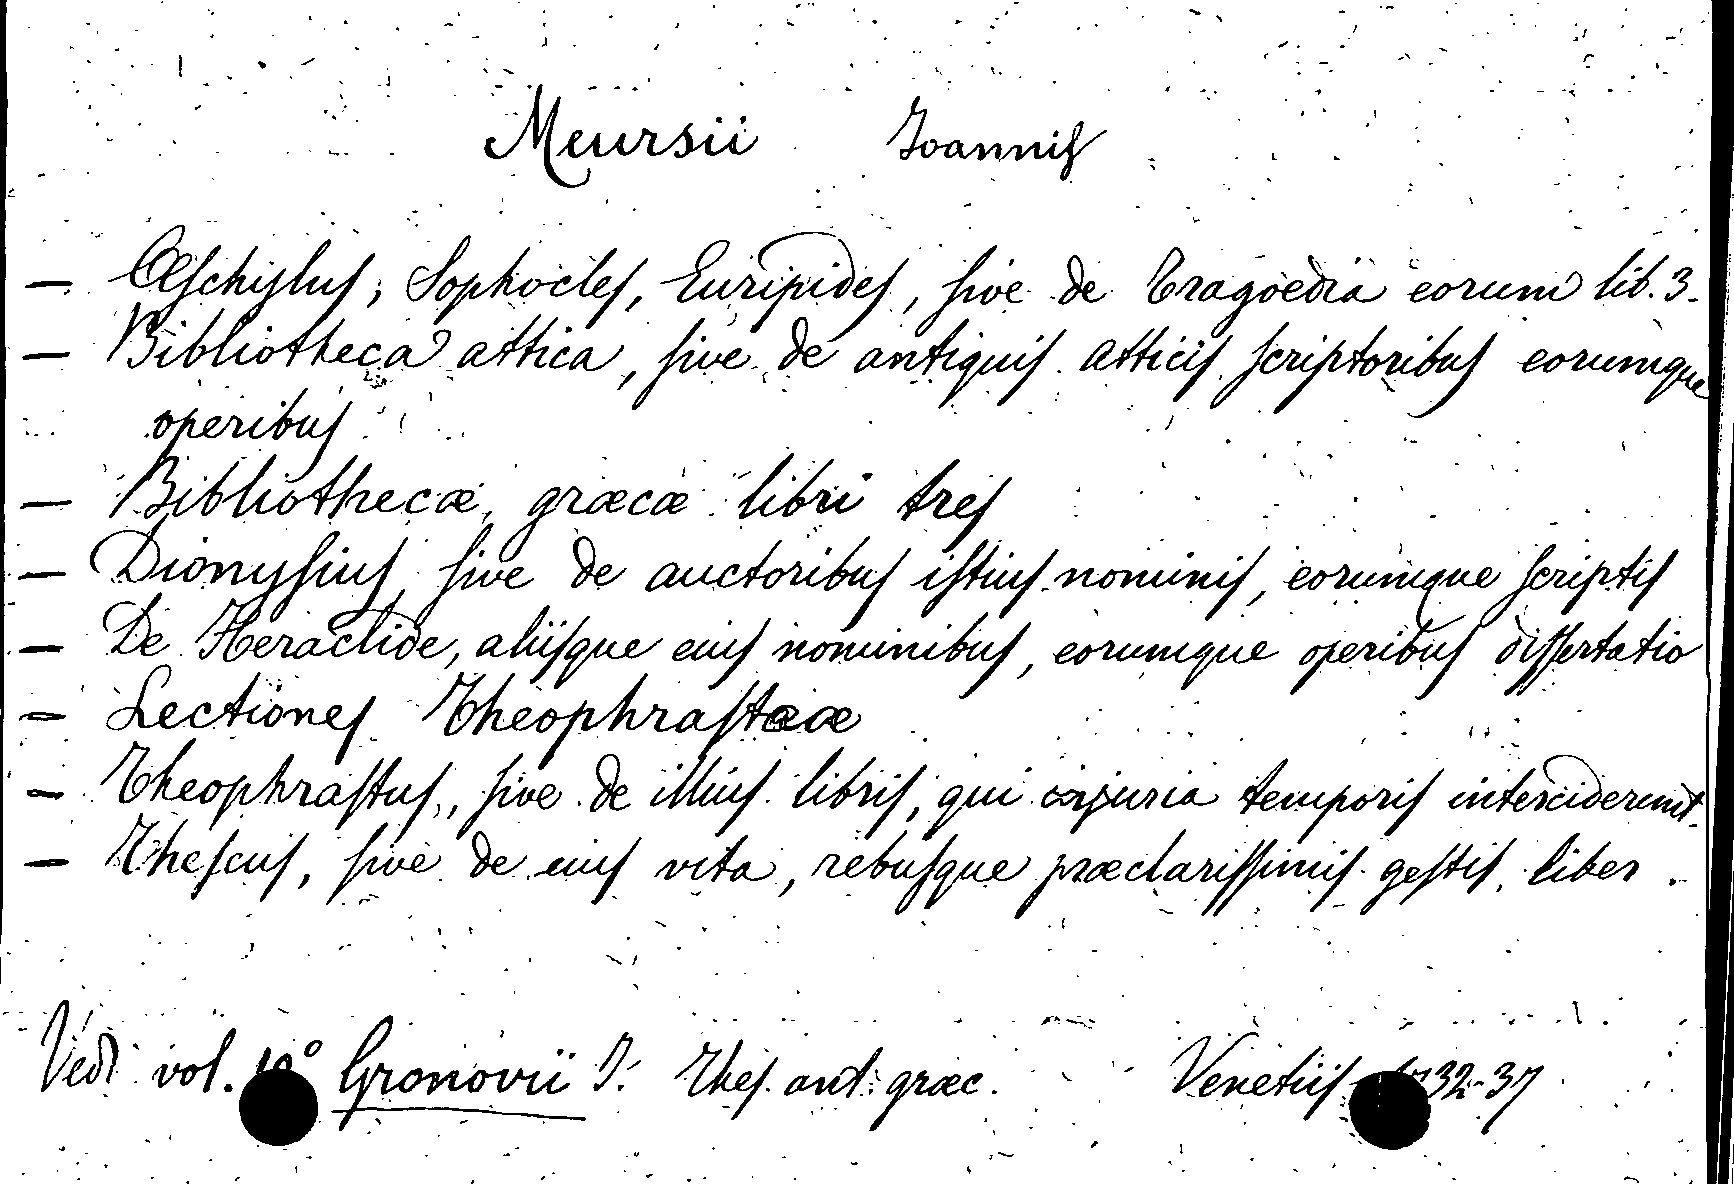 Meursii Joannis
— Æschylus, Sophocles, Euripides, sive de Tragoedia eorum lib. 3.
— Bibliotheca attica, sive de antiquis atticis scriptoribus eorumque
operibus
— Bibliothecæ græcæ libri tres
— Dionysius, sive de auctoribus istius nominis, eorumque scriptis
— De Heraclide, aliisque eius nominibus, eorumque operibus dissertatio
— Lectiones Theophrastææ
— Theophrastus, sive de illius libris, qui injuria temporis interciderunt.
— Theseus, sive de eius vita, rebusque præclarissimis gestis, liber.
Vedi vol. 10º Gronovii J. Thes. ant. græc. Venetiis 1732-37